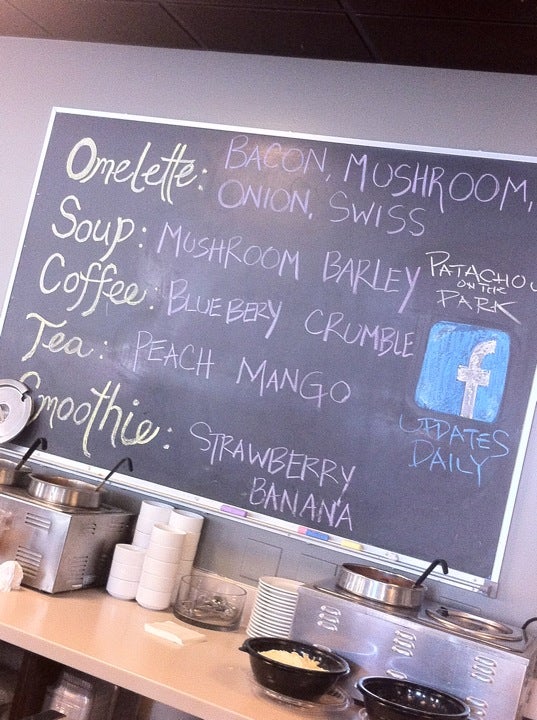 Omelette: BACON, MUSHROOM,
ONION, SWISS
Soup: MUSHROOM BARLEY
Coffee: BLUEBERY CRUMBLE
Tea: PEACH MANGO
Smoothie: STRAWBERRY
BANANA
PATACHOU
ON THE
PARK
f
UPDATES
DAILY